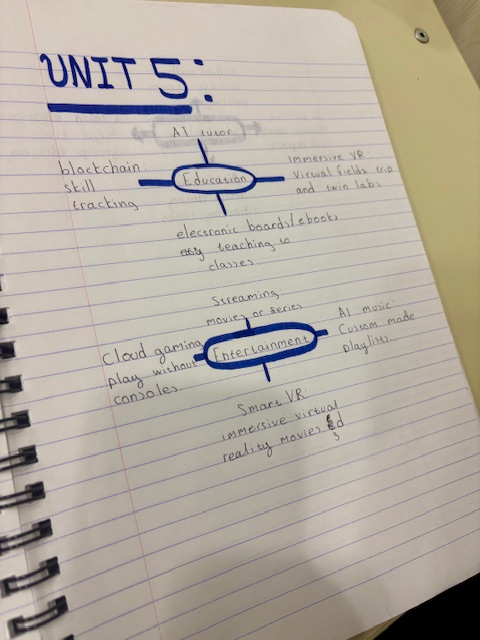 UNIT 5:
AI tutor
blockchain
skill
tracking
Education
Immersive VR
Virtual fields trip
and twin labs
electronic boards/ebooks
easy teaching in
classes
Streaming
movies or series
Cloud gaming
play without
consoles
Entertainment
AI music
Custom made
playlists
Smart VR:
immersive virtual
reality movies